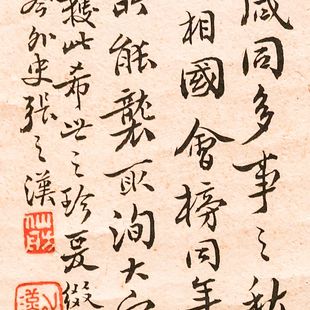 咸同多事之秋
相國會榜同年
能襲取洵大
獲此希世之珍爰綴
外史張之漢